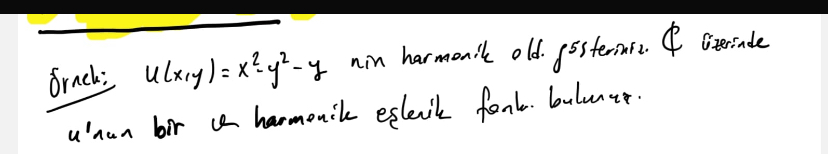 Örnek: u(x,y) = x²-y²-y nin harmonik old. gösteriniz. ₵ üzerinde
u'nun bir v harmonik eşlenik fonk. bulunuz.